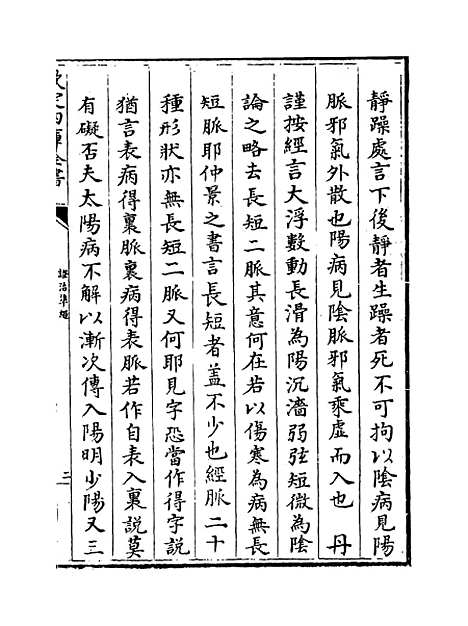 靜躁處言下後靜者生躁者死不可拘以陰病見陽
脈邪氣外散也陽病見陰脈邪氣乘虛而入也　丹
謹按經言大浮數動長滑為陽沉濇弱弦短微為陰
論之略去長短二脈其意何在若以傷寒為病無長
短脈耶仲景之書言長短者蓋不少也經脈二十
種形狀亦無長短二脈又何耶見字恐當作得字説
猶言表病得裏脈裏病得表脈若作自表入裏說莫
有礙否夫太陽病不解以漸次傳入陽明少陽又三
欽定四庫全書
證治準繩
三